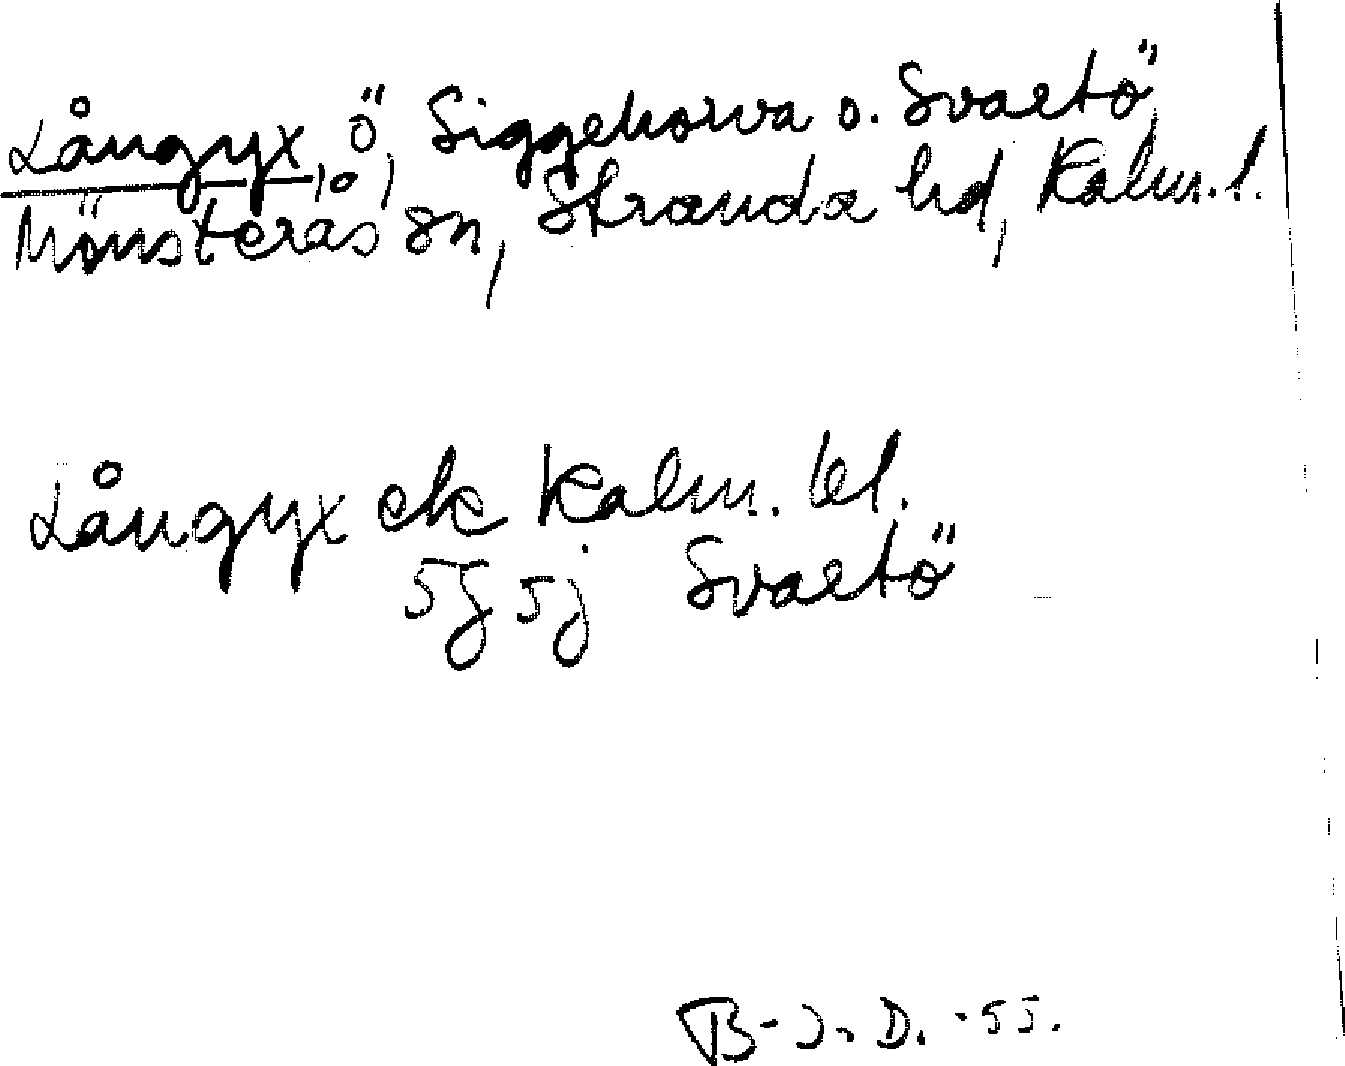 Långyx, ö, Siggehorva o. Svartö,
Mönsterås sn, Stranda hd, Kalm. l.
Långyx ek Kalm. bl.
5g5j Svartö
B-J. D. -55.